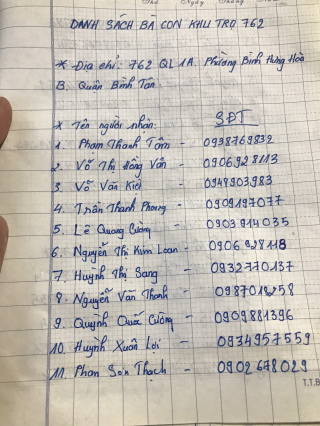 Thứ Ngày Tháng
DANH SÁCH BÀ CON KHU TRỌ 762
* Địa chỉ: 762 QL 1A Phường Bình Hưng Hoà
B. Quận Bình Tân
* Tên người nhận: SĐT
1. Phạm Thanh Tâm - 0938769839
2. Võ Thị Hồng Vân - 0906928113
3. Võ Văn Kiơ - 0949903983
4. Trần Thanh Phong - 0909197077
5. Lê Quang Cường - 0903914035
6. Nguyễn Thị Kim Loan - 0906928118
7. Huỳnh Thị Sang - 0932770137
8. Nguyễn Văn Thanh - 0987019258
9. Quỳnh Quốc Cường - 0909881396
10. Huỳnh Xuân Lợi - 0934957559
11. Phan Sơn Thạch - 0902678029